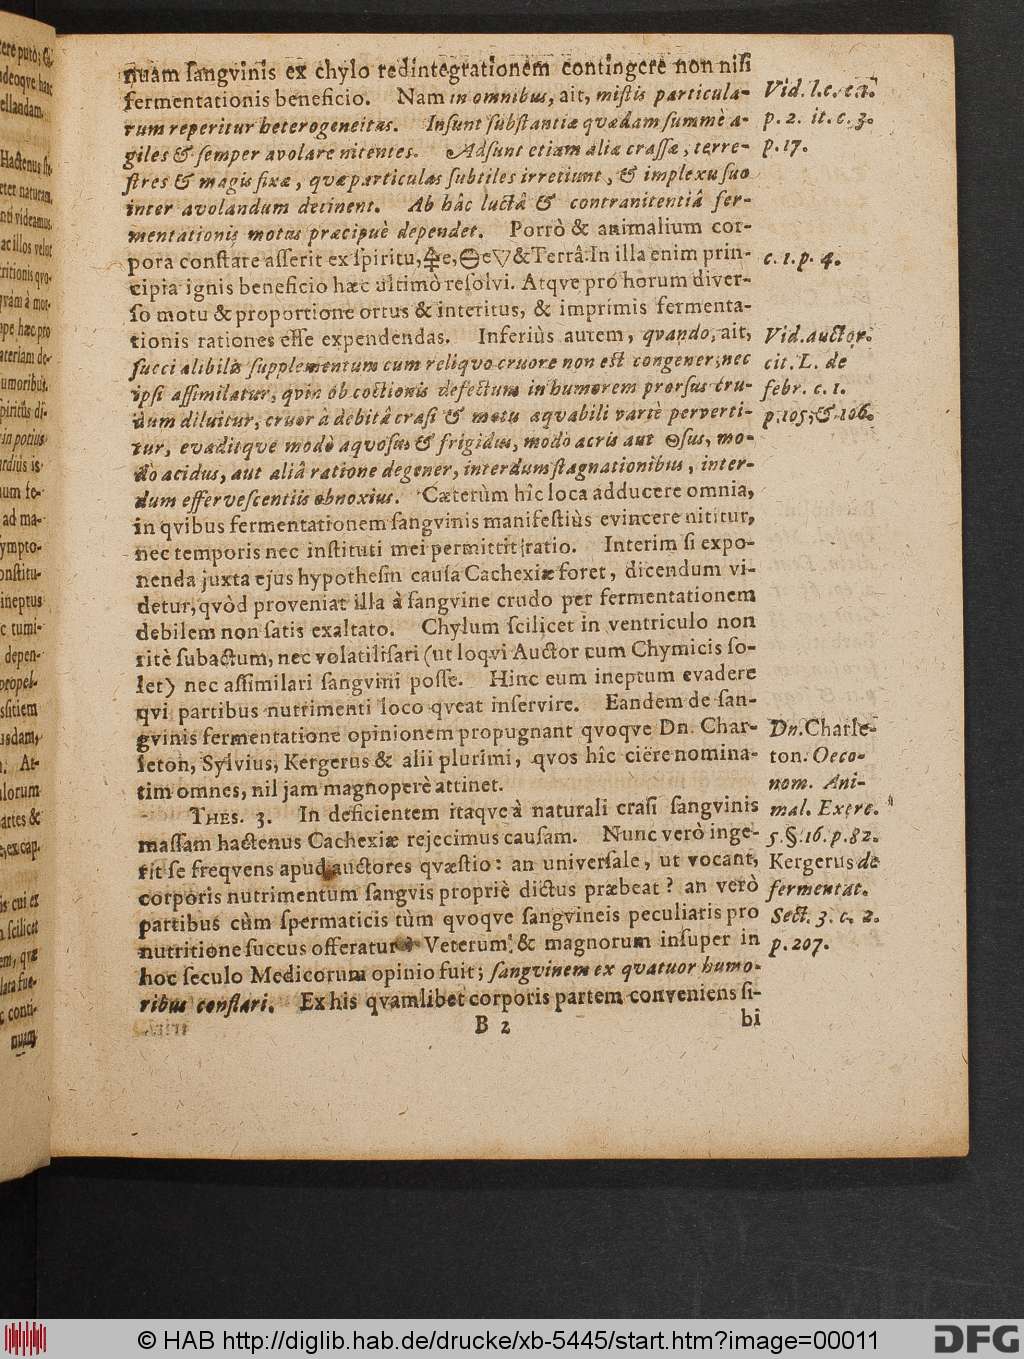 nuam sangvinis ex chylo redintegrationem contingere non nisi
fermentationis beneficio. Nam in omnibus, ait, mistis particula-
rum reperitur heterogeneitas. Insunt substantiæ qvædam summè a-
giles & semper avolare nitentes. Adsunt etiam aliæ crassæ, terre-
stres & magis fixæ, qvæ particulas subtiles irretiunt, & implexu suo
inter avolandum detinent. Ab hâc luctâ & contranitentiâ fer-
mentationis motus præcipuè dependet. Porrò & animalium cor-
pora constare asserit ex spiritu, 🜍e, 🜔e ▽ & Terrâ. In illa enim prin-
cipia ignis beneficio hæc ultimò resolvi. Atqve pro horum diver-
so motu & proportione ortus & interitus, & imprimis fermenta-
tionis rationes esse expendendas. Inferiùs autem, qvando, ait,
succi alibilis supplementum cum reliqvo cruore non est congener, nec
ipsi assimilatur, qvin ob coctionis defectum in humorem prorsus cru-
dum diluitur, cruor à debitâ crasi & motu aqvabili variè perverti-
tur, evaditqve modò aqvosus & frigidus, modò acris aut 🜔sus, mo-
dò acidus, aut aliâ ratione degener, interdum stagnationibus, inter-
dum effervescentiis obnoxius. Cæterùm hîc loca adducere omnia,
in qvibus fermentationem sangvinis manifestiùs evincere nititur,
nec temporis nec instituti mei permittit ratio. Interim si expo-
nenda juxta ejus hypothesin causa Cachexiæ foret, dicendum vi-
detur, qvòd proveniat illa à sangvine crudo per fermentationem
debilem non satis exaltato. Chylum scilicet in ventriculo non
ritè subactum, nec volatilisari (ut loqvi Auctor cum Chymicis so-
let) nec assimilari sangvini posse. Hinc eum ineptum evadere
qvi partibus nutrimenti loco qveat inservire. Eandem de san-
gvinis fermentatione opinionem propugnant qvoqve Dn. Char-
leton, Sylvius, Kergerus & alii plurimi, qvos hîc ciêre nomina-
tim omnes, nil jam magnoperè attinet.
THES. 3. In deficientem itaqve à naturali crasi sangvinis
massam hactenus Cachexiæ rejecimus causam. Nunc verò inge-
rit se freqvens apud auctores qvæstio: an universale, ut vocant,
corporis nutrimentum sangvis propriè dictus præbeat? an verò
partibus cùm spermaticis tùm qvoqve sangvineis peculiaris pro
nutritione succus offeratur? Veterum, & magnorum insuper in
hoc seculo Medicorum opinio fuit; sangvinem ex qvatuor humo-
ribus constari. Ex his qvamlibet corporis partem conveniens si-
B 2
bi
Vid. l. c. c. 1.
p. 2. it. c. 3.
p. 17.
c. 1. p. 4.
Vid. auctor.
cit. L. de
febr. c. 1.
p. 105, & 106.
Dn. Charle-
ton. Oeco-
nom. Ani-
mal. Exerc.
5. §. 16. p. 82.
Kergerus de
fermentat.
Sect. 3. c. 2.
p. 207.
© HAB http://diglib.hab.de/drucke/xb-5445/start.htm?image=00011
DFG